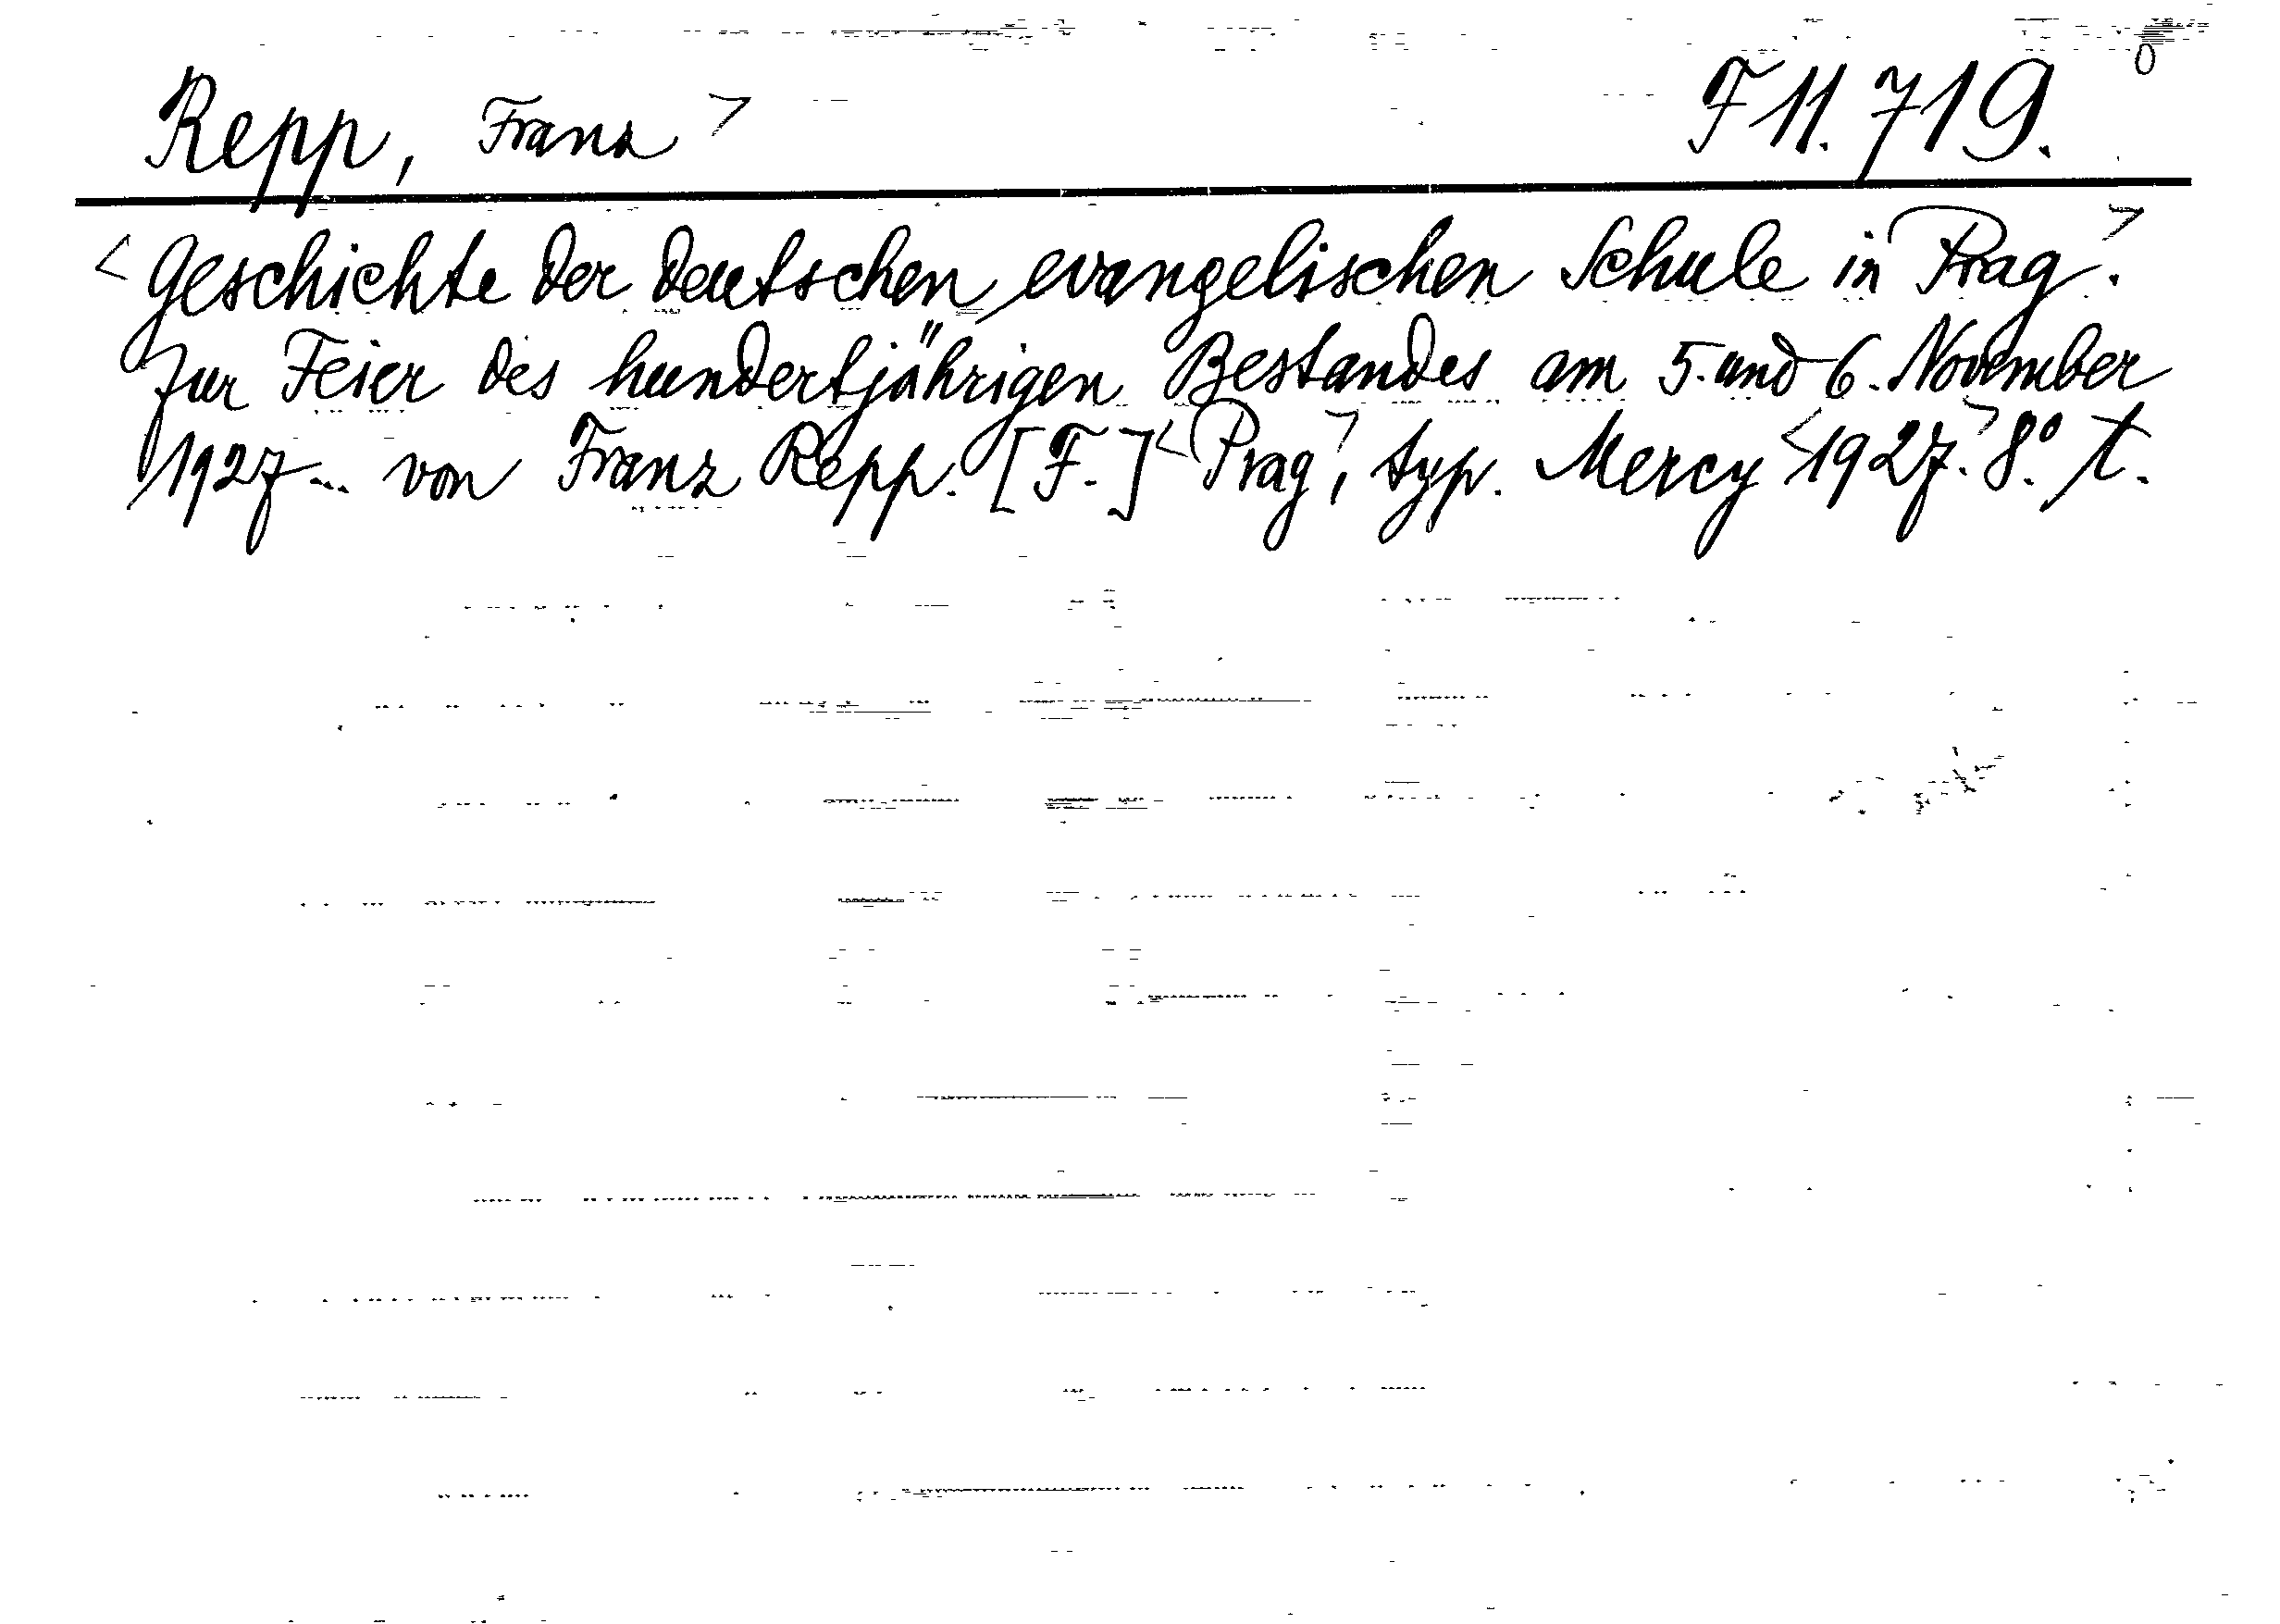 Repp, Franz > F 11.719.
<Geschichte der deutschen evangelischen Schule in Prag.>
Zur Feier des hundertjährigen Bestandes am 5. und 6. November
1927... von Franz Repp. [F.] <Prag>, typ. Mercy <1927.> 8.° t.